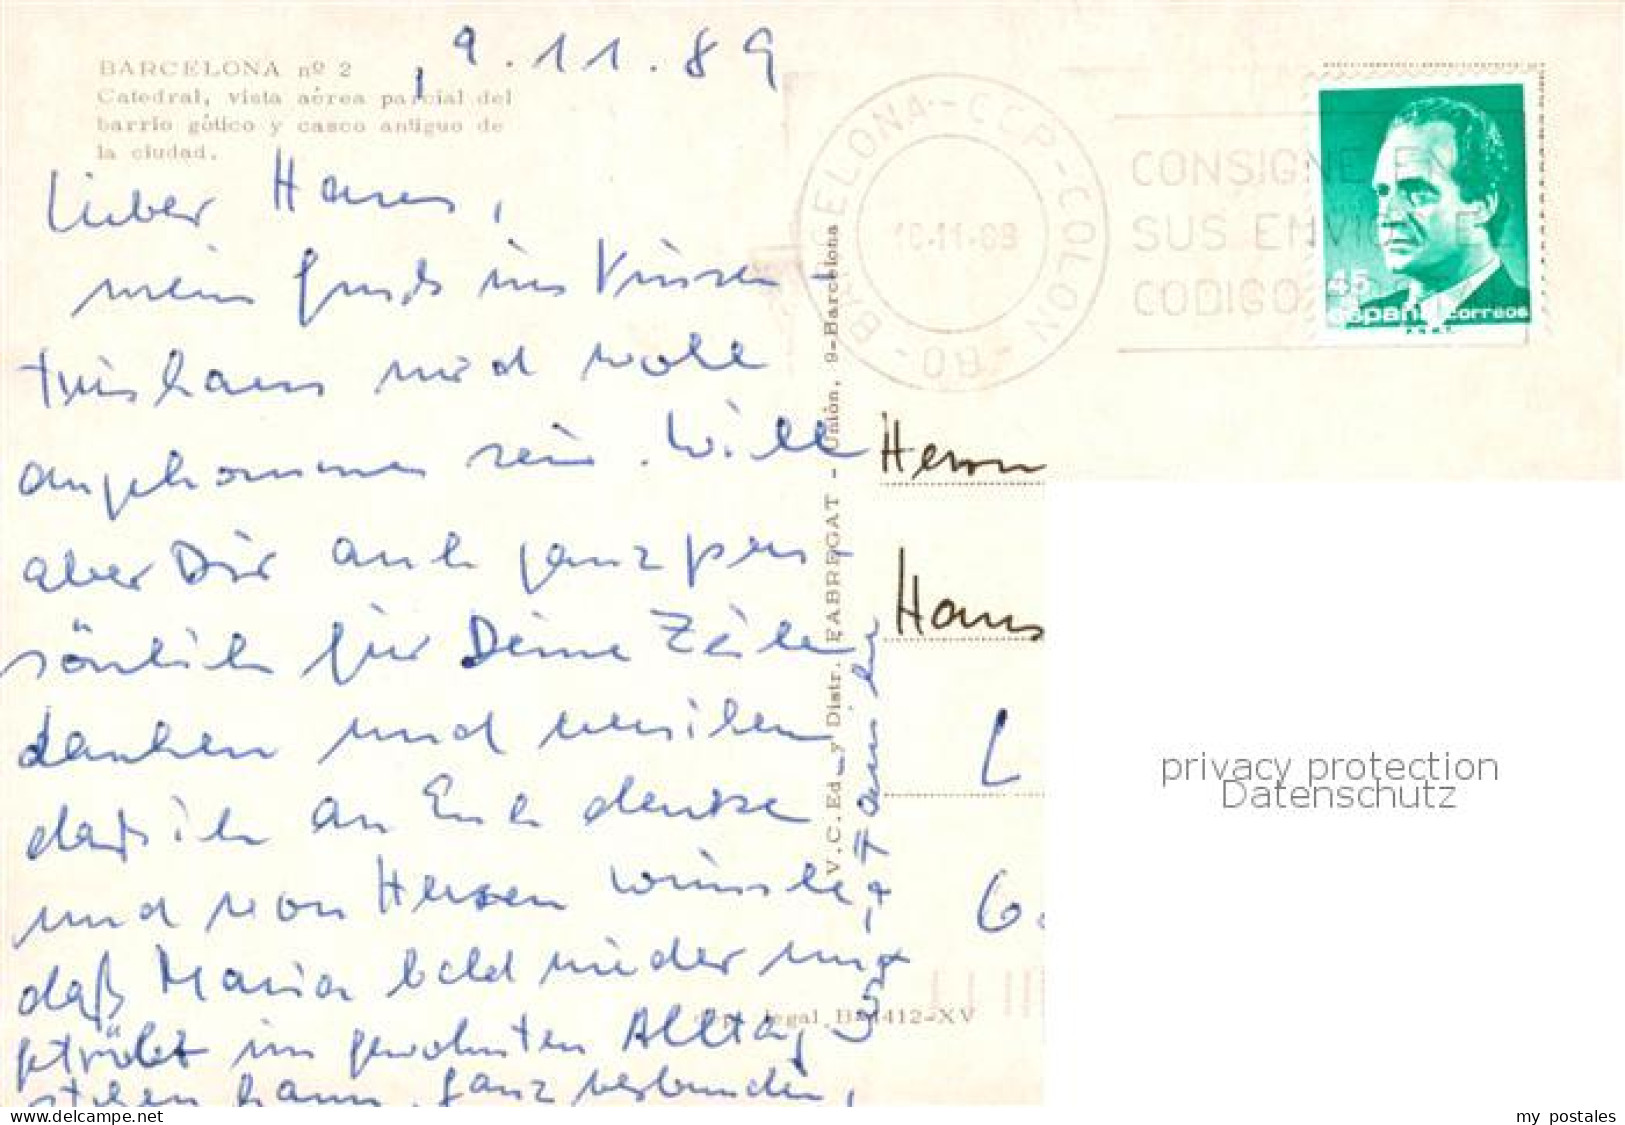 BARCELONA nº 2
Catedral, vista aérea parcial del
barrio gótico y casco antiguo de
la ciudad.
9.11.89
Lieber Hans,
mein Gruß ins Vinzen-
tinshaus wird wohl
angekommen sein. Will
aber Dir auch ganz per-
sönlich für Deine Zeilen
danken und versichern
daß ich an Euch denke
und von Herzen wünsche,
daß Maria bald wieder un-
getrübt im gewohnten Alltag
stehen kann. Ganz verbunden,
V.C.Ed. y Distr. FABREGAT - Unión, 9-Barcelona
legal B-
412-XV
BARCELONA - CCP - COLON - RO -
CONSIGNE EN
SUS ENVIOS EL
CODIGO
45
españa correos
Herrn
Hans
L
G.
privacy protection
Datenschutz
my postales